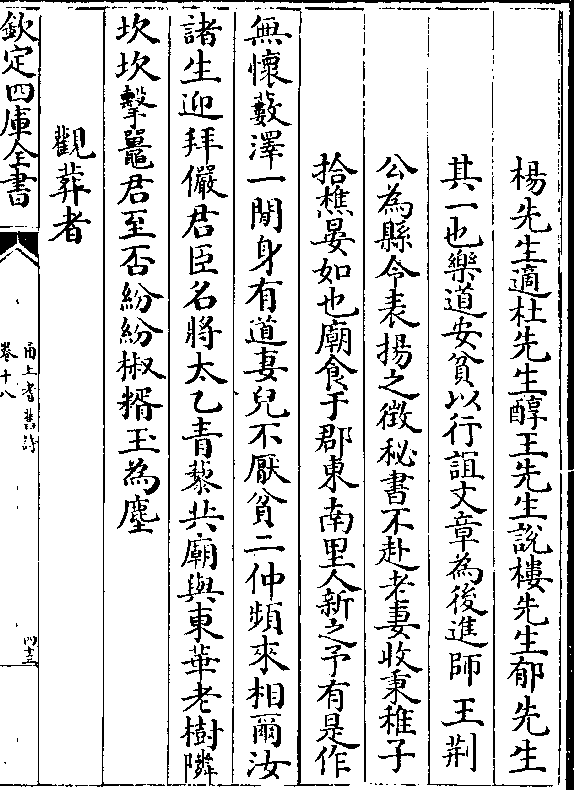 楊先生適杜先生醇王先生說樓先生郁先生
其一也樂道安貧以行誼文章為後進師王荆
公為縣令表揚之徵秘書不赴老妻收秉稚子
拾樵晏如也廟食于郡東南里人新之予有是作
無懷藪澤一閒身有道妻兒不厭貧二仲頻來相爾汝
諸生迎拜儼君臣名將太乙青藜共廟與東華老樹隣
坎坎擊鼉君至否紛紛椒糈玉為塵
觀葬者
欽定四庫全書
甬上耆舊詩
卷十八
四十三